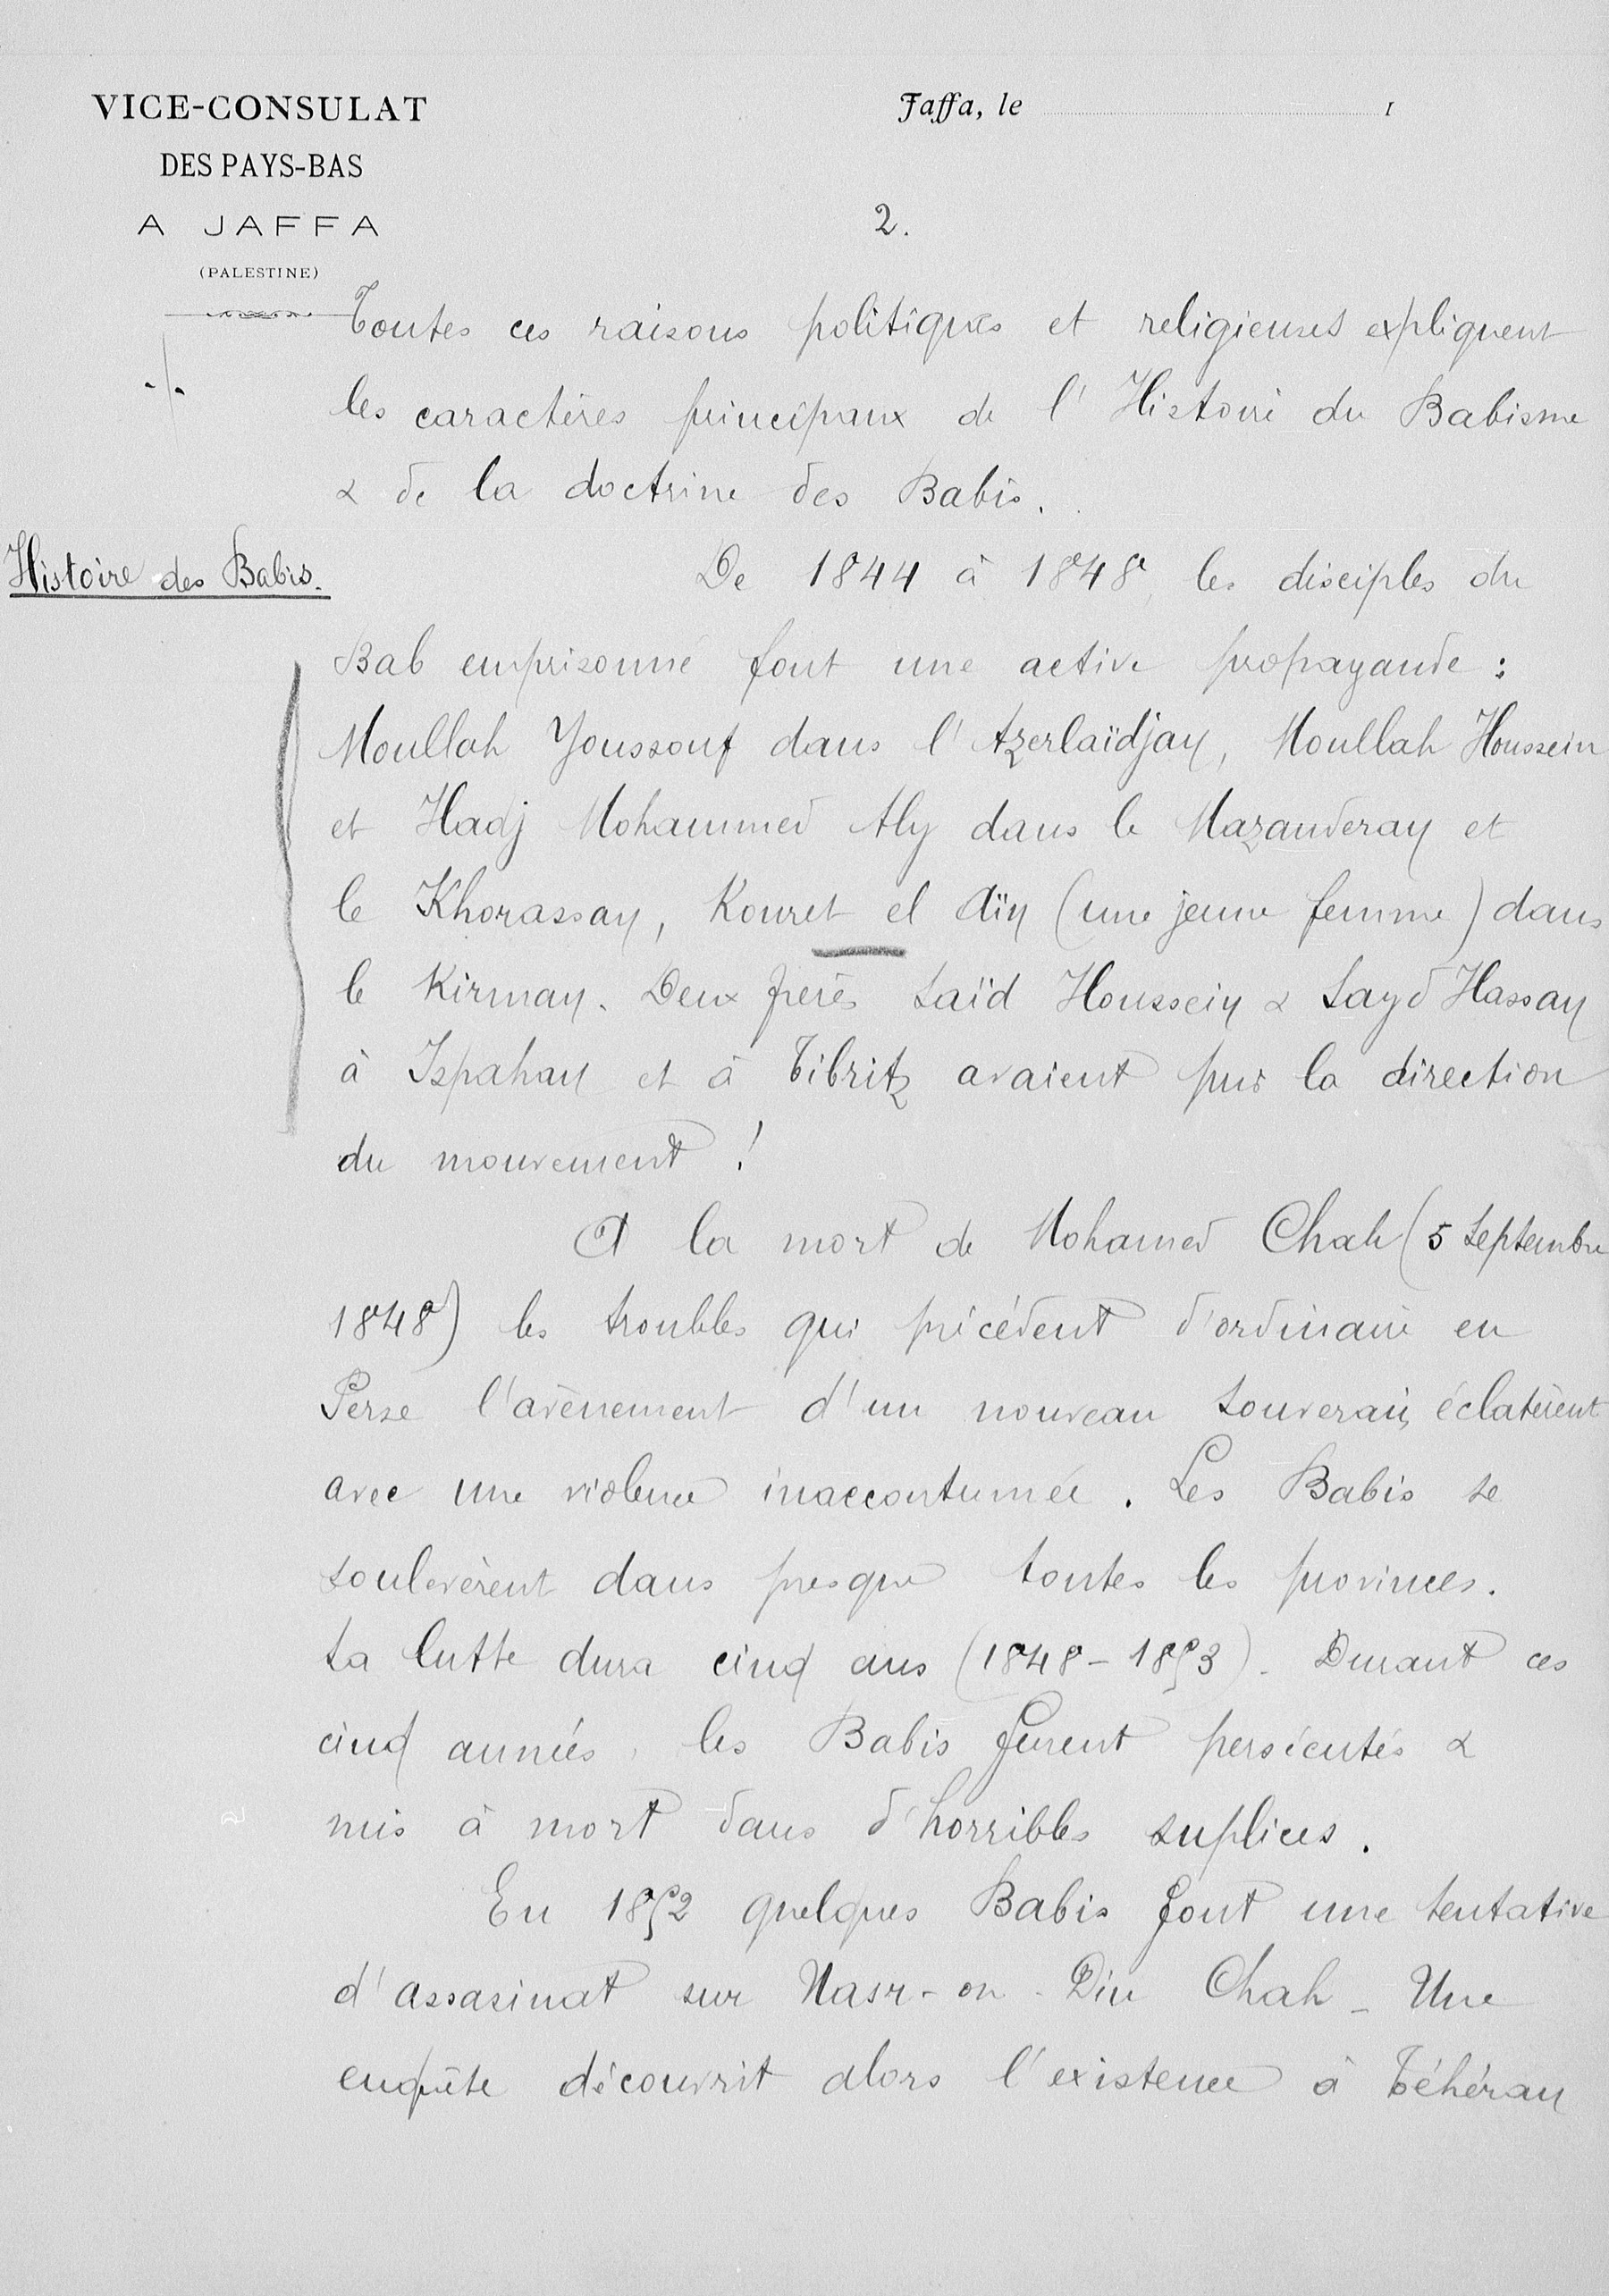 VICE-CONSULAT
DES PAYS-BAS
A JAFFA
(PALESTINE)
Jaffa, le 1
2.
Toutes ces raisons politiques et religieuses expliquent
les caractères principaux de l'Histoire du Babisme
& de la doctrine des Babis.
Histoire des Babis.
De 1844 à 1848, les disciples du
Bab emprisonné font une active propagande :
Moullah Youssouf dans l'Azerlaïdjan, Moullah Houssein
et Hadj Mohammed Aly dans le Mazanderan et
le Khorassan, Kouret el Aïn (une jeune femme) dans
le Kirman. Deux frères Saïd Houssein & Sayd Hassan
à Ispahan et à Tibritz avaient pris la direction
du mouvement !
A la mort de Mohamed Chah (5 Septembre
1848) les troubles qui précédent d'ordinaire en
Perse l'avènement d'un nouveau Souverain, éclatèrent
avec une violence inaccoutumée. Les Babis se
soulevèrent dans presque toutes les provinces.
La lutte dura cinq ans (1848-1853). Durant ces
cinq années, les Babis furent persécutés &
mis à mort dans d'horribles suplices.
En 1852 quelques Babis font une tentative
d'assasinat sur Nasr-on-Din Chah - Une
enquête découvrit alors l'existence à Téhéran